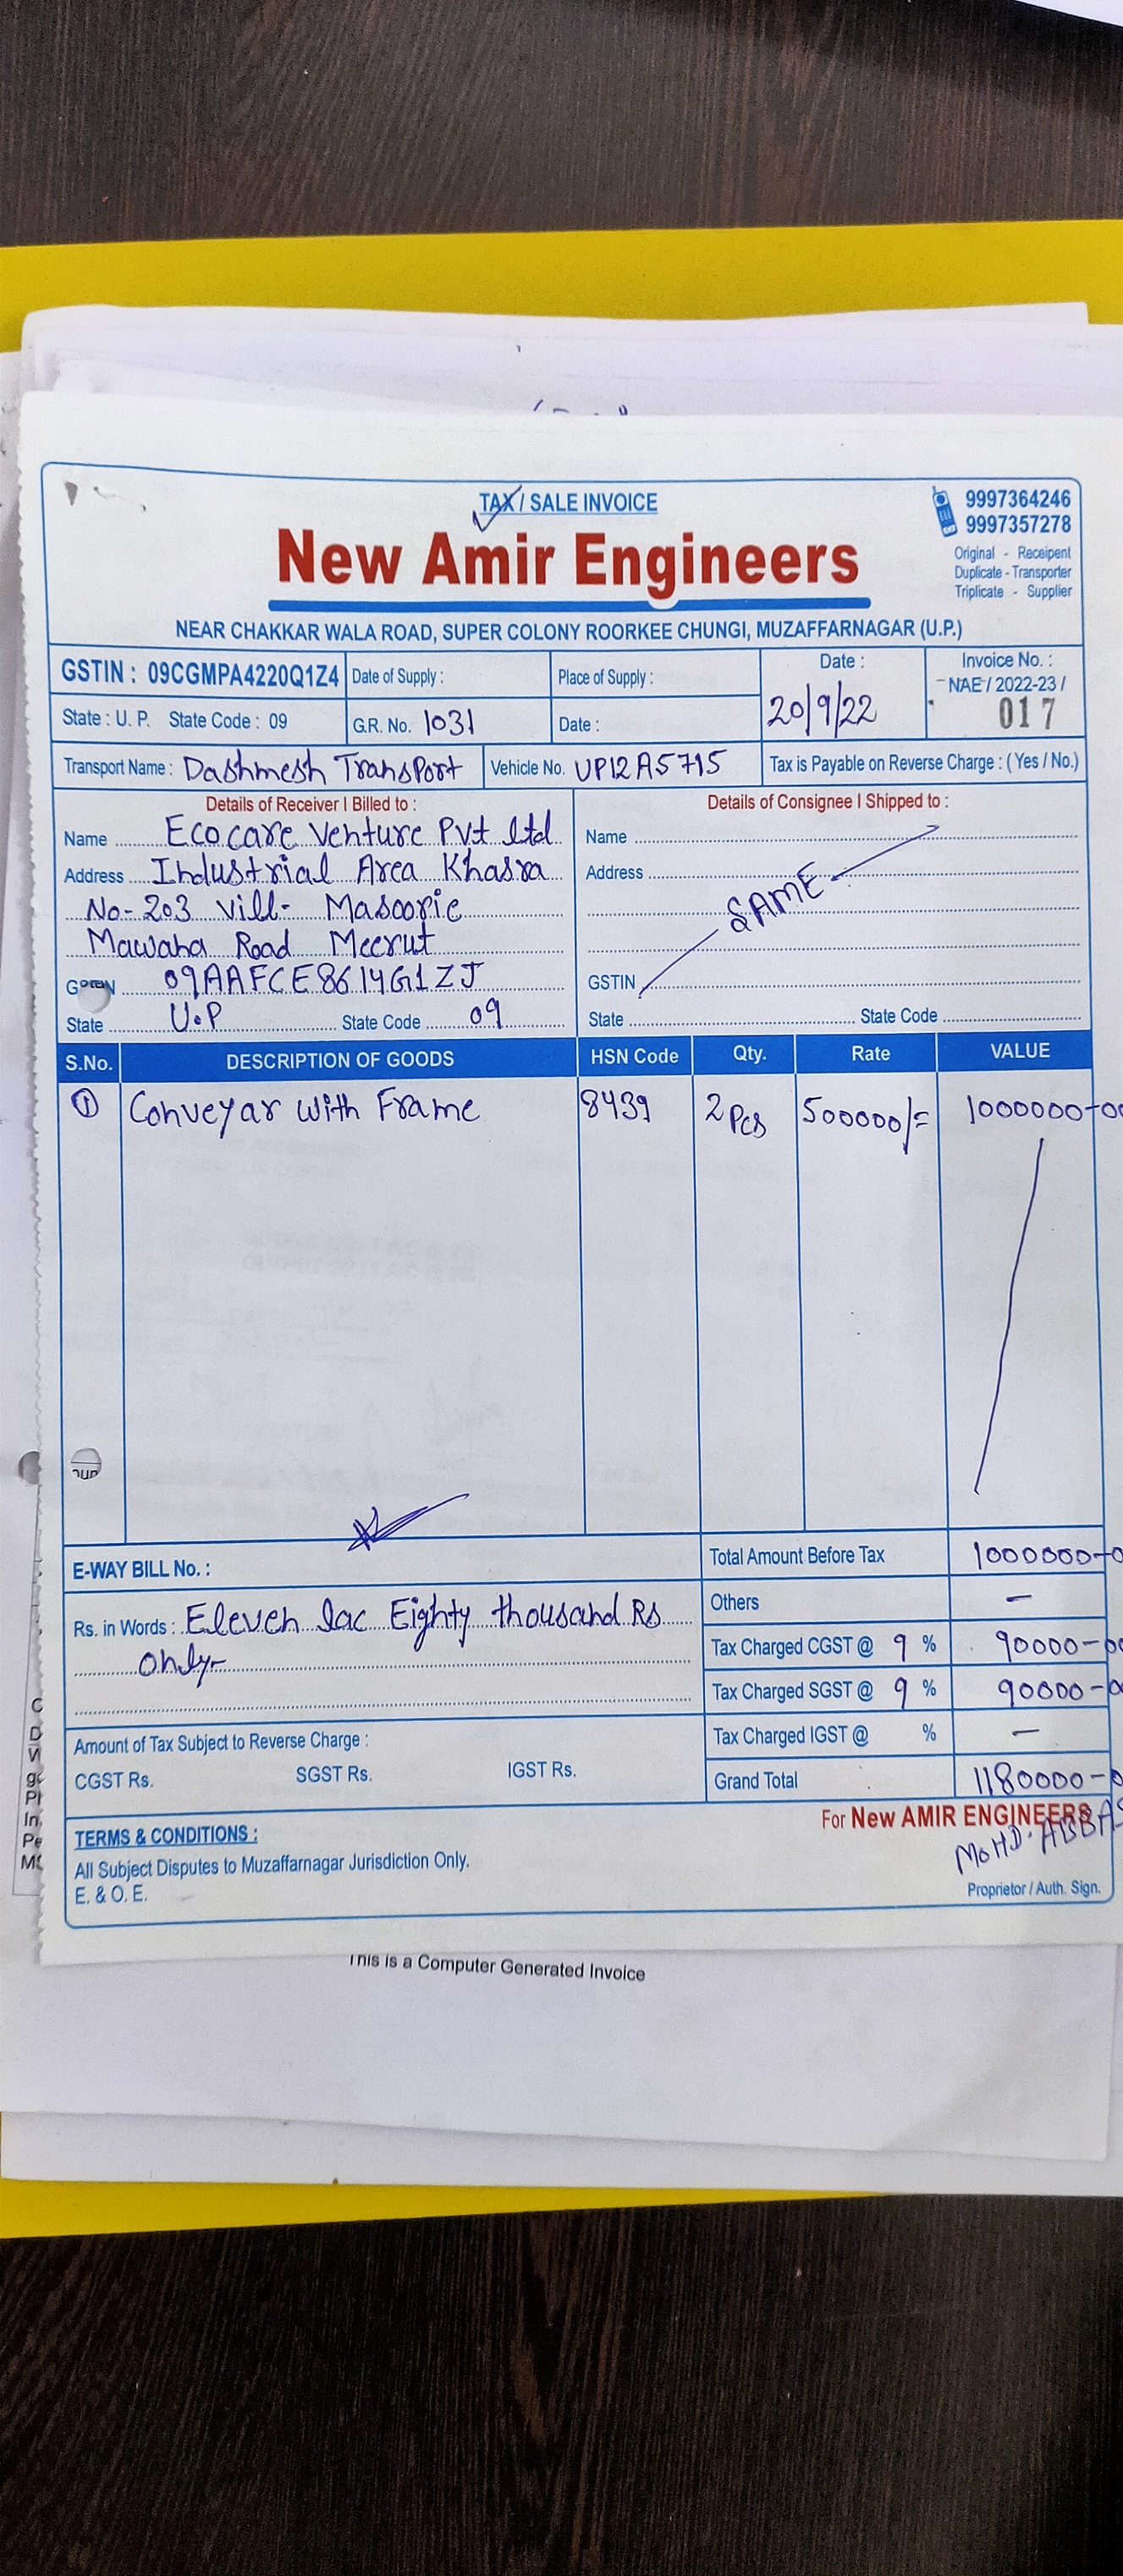 TAX / SALE INVOICE
9997364246
9997357278
New Amir Engineers
Original - Receipent
Duplicate - Transporter
Triplicate - Supplier
NEAR CHAKKAR WALA ROAD, SUPER COLONY ROORKEE CHUNGI, MUZAFFARNAGAR (U.P.)
GSTIN : 09CGMPA4220Q1Z4 Date of Supply : Place of Supply : Date : 20/9/22 Invoice No. : NAE / 2022-23 / 017
State : U. P. State Code : 09 G.R. No. 1031 Date :
Transport Name : Dashmesh Transport Vehicle No. UP12A5715 Tax is Payable on Reverse Charge : ( Yes / No.)
Details of Receiver I Billed to :
Name Ecocare Venture Pvt ltd
Address Industrial Area Khasra
No- 203 Vill- Masoorie
Mawaha Road Meerut
09AAFCE8614G1ZJ
State U.P State Code 09
Details of Consignee I Shipped to :
Name
Address
SAME
GSTIN
State State Code
S.No. DESCRIPTION OF GOODS HSN Code Qty. Rate VALUE
1 Conveyar with Frame 8439 2 Pcs 500000/= 1000000-00
E-WAY BILL No. :
Rs. in Words : Eleven lac Eighty thousand Rs
only-
Total Amount Before Tax 1000000-0
Others —
Tax Charged CGST @ 9 % 90000-00
Tax Charged SGST @ 9 % 90000-0
Tax Charged IGST @ % —
Grand Total 1180000-0
Amount of Tax Subject to Reverse Charge :
CGST Rs. SGST Rs. IGST Rs.
TERMS & CONDITIONS :
All Subject Disputes to Muzaffarnagar Jurisdiction Only.
E. & O. E.
For New AMIR ENGINEERS
MOHD. ABBAS
Proprietor / Auth. Sign.
This is a Computer Generated Invoice